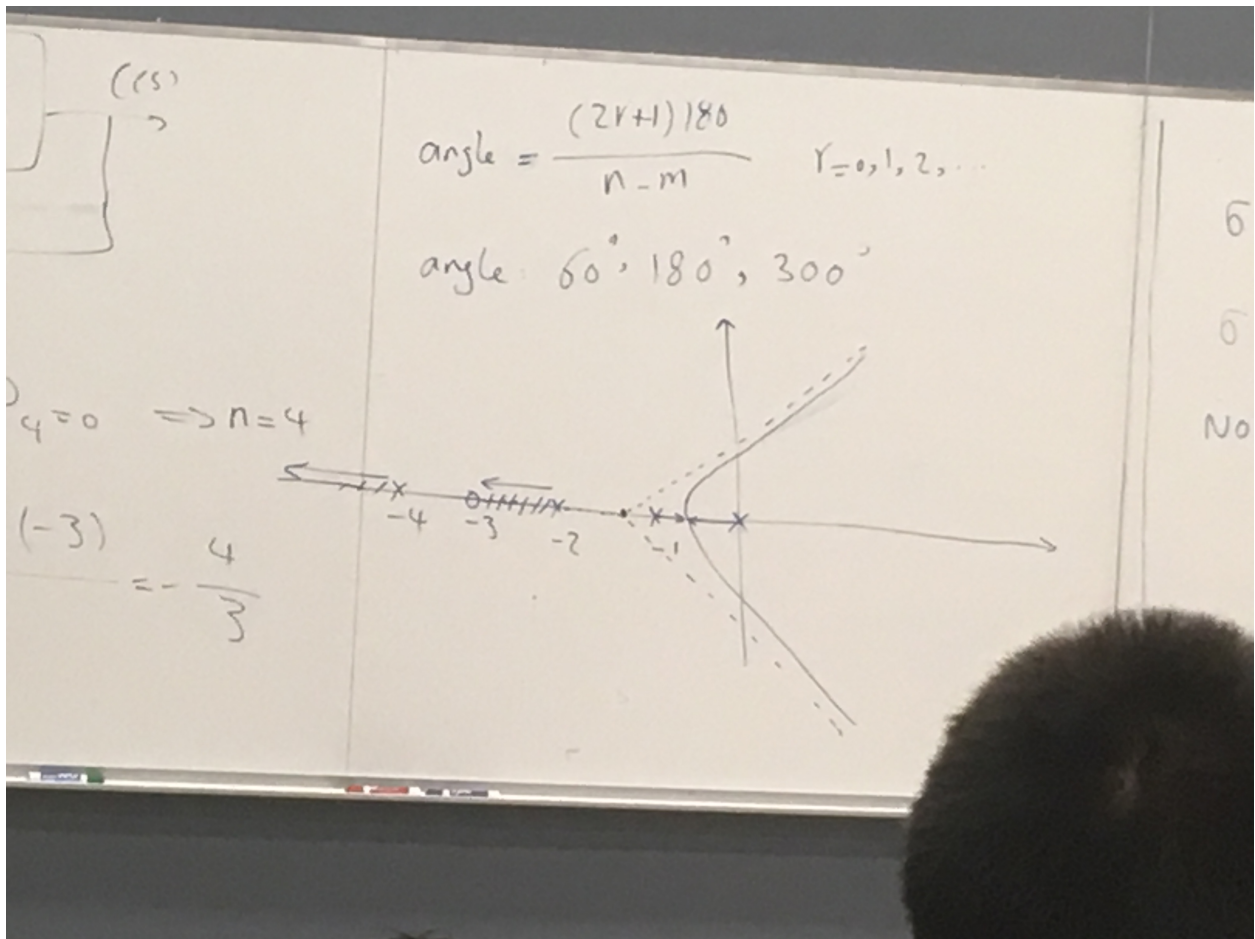 C(s)
angle = (2r+1)180 / n-m r=0,1,2,...
angle: 60°, 180°, 300°
4=0 => n=4
(-3)
= - 4/3
-4 -3 -2 -1
6
6
No